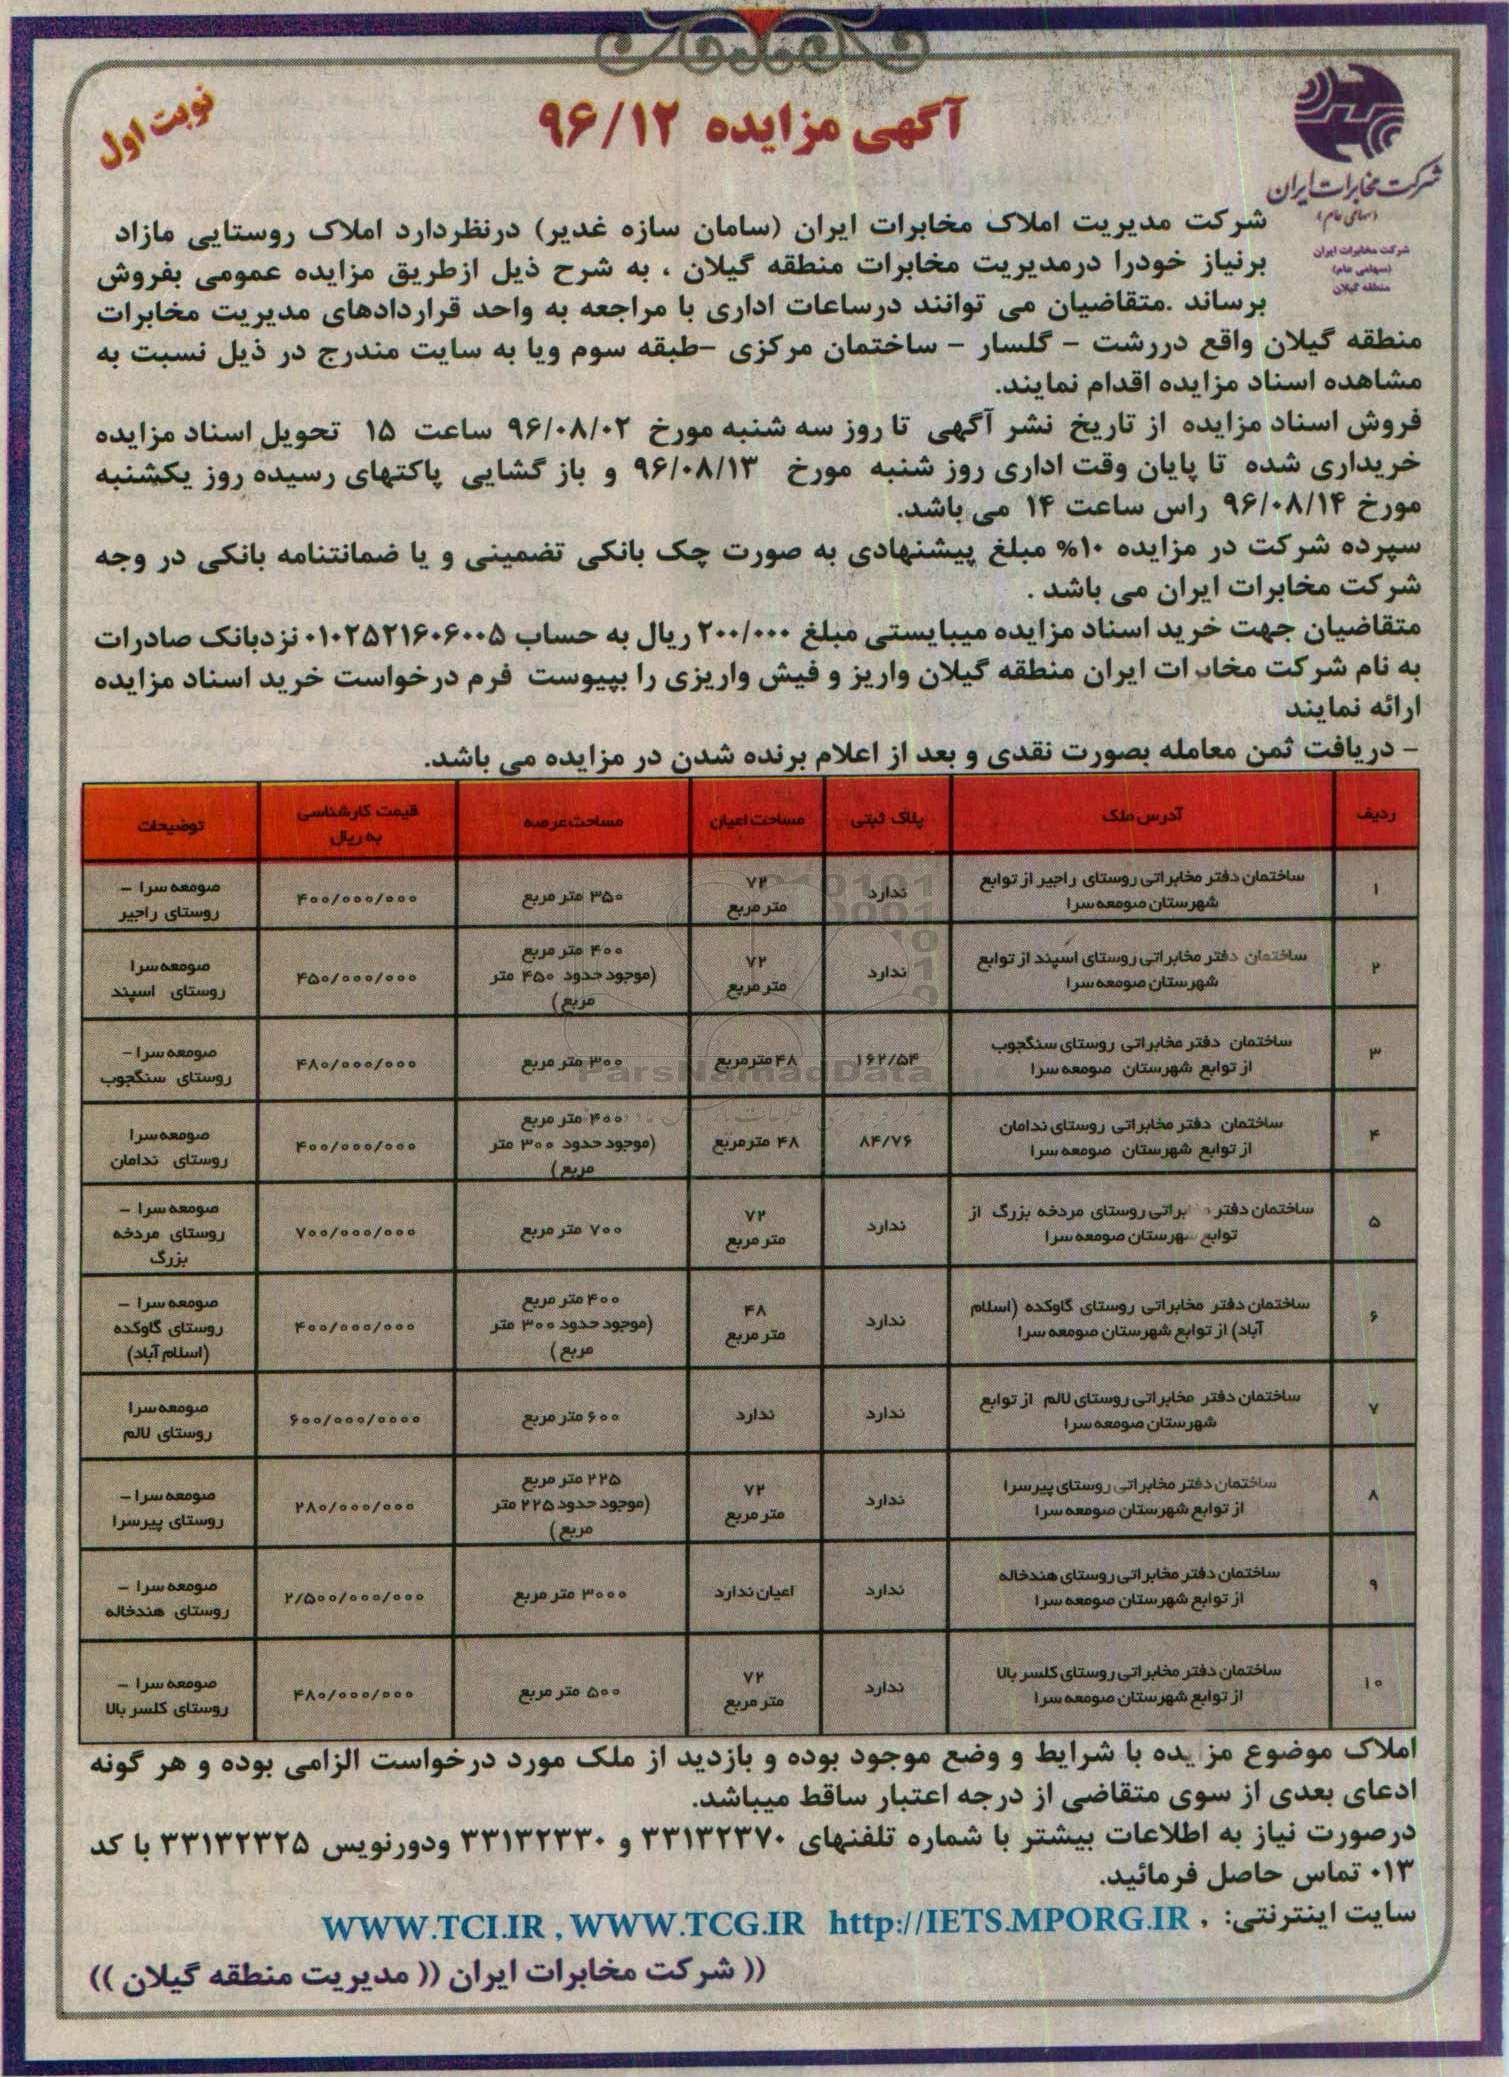 نوبت اول
آگهی مزایده ۹۶/۱۲
شرکت مخابرات ایران
(سهامی عام)
شرکت مخابرات ایران
(سهامی عام)
منطقه گیلان
شرکت مدیریت املاک مخابرات ایران (سامان سازه غدیر) درنظردارد املاک روستایی مازاد
برنیاز خودرا درمدیریت مخابرات منطقه گیلان ، به شرح ذیل ازطریق مزایده عمومی بفروش
برساند .متقاضیان می توانند درساعات اداری با مراجعه به واحد قراردادهای مدیریت مخابرات
منطقه گیلان واقع دررشت – گلسار – ساختمان مرکزی –طبقه سوم ویا به سایت مندرج در ذیل نسبت به
مشاهده اسناد مزایده اقدام نمایند.
فروش اسناد مزایده از تاریخ نشر آگهی تا روز سه شنبه مورخ ۹۶/۰۸/۰۲ ساعت ۱۵ تحویل اسناد مزایده
خریداری شده تا پایان وقت اداری روز شنبه مورخ ۹۶/۰۸/۱۳ و باز گشایی پاکتهای رسیده روز یکشنبه
مورخ ۹۶/۰۸/۱۴ راس ساعت ۱۴ می باشد.
سپرده شرکت در مزایده ۱۰% مبلغ پیشنهادی به صورت چک بانکی تضمینی و یا ضمانتنامه بانکی در وجه
شرکت مخابرات ایران می باشد .
متقاضیان جهت خرید اسناد مزایده میبایستی مبلغ ۲۰۰/۰۰۰ ریال به حساب ۰۱۰۲۵۲۱۶۰۶۰۰۵ نزدبانک صادرات
به نام شرکت مخابرات ایران منطقه گیلان واریز و فیش واریزی را بپیوست فرم درخواست خرید اسناد مزایده
ارائه نمایند
– دریافت ثمن معامله بصورت نقدی و بعد از اعلام برنده شدن در مزایده می باشد.
ردیف آدرس ملک پلاک ثبتی مساحت اعیان مساحت عرصه قیمت کارشناسی به ریال توضیحات
۱ ساختمان دفتر مخابراتی روستای راجیر از توابع شهرستان صومعه سرا ندارد ۷۲ متر مربع ۳۵۰ متر مربع ۴۰۰/۰۰۰/۰۰۰ صومعه سرا – روستای راجیر
۲ ساختمان دفتر مخابراتی روستای اسپند از توابع شهرستان صومعه سرا ندارد ۷۲ متر مربع ۴۰۰ متر مربع (موجود حدود ۴۵۰ متر مربع) ۴۵۰/۰۰۰/۰۰۰ صومعه سرا روستای اسپند
۳ ساختمان دفتر مخابراتی روستای سنگجوب از توابع شهرستان صومعه سرا ۱۶۲/۵۴ ۴۸ مترمربع ۳۰۰ متر مربع ۴۸۰/۰۰۰/۰۰۰ صومعه سرا – روستای سنگجوب
۴ ساختمان دفتر مخابراتی روستای ندامان از توابع شهرستان صومعه سرا ۸۴/۷۶ ۴۸ مترمربع ۴۰۰ متر مربع (موجود حدود ۳۰۰ متر مربع) ۴۰۰/۰۰۰/۰۰۰ صومعه سرا روستای ندامان
۵ ساختمان دفتر مخابراتی روستای مردخه بزرگ از توابع شهرستان صومعه سرا ندارد ۷۲ متر مربع ۷۰۰ متر مربع ۷۰۰/۰۰۰/۰۰۰ صومعه سرا – روستای مردخه بزرگ
۶ ساختمان دفتر مخابراتی روستای گاوکده (اسلام آباد) از توابع شهرستان صومعه سرا ندارد ۴۸ متر مربع ۴۰۰ متر مربع (موجود حدود ۳۰۰ متر مربع) ۴۰۰/۰۰۰/۰۰۰ صومعه سرا – روستای گاوکده (اسلام آباد)
۷ ساختمان دفتر مخابراتی روستای لالم از توابع شهرستان صومعه سرا ندارد ندارد ۶۰۰ متر مربع ۶۰۰/۰۰۰/۰۰۰۰ صومعه سرا روستای لالم
۸ ساختمان دفتر مخابراتی روستای پیرسرا از توابع شهرستان صومعه سرا ندارد ۷۲ متر مربع ۲۲۵ متر مربع (موجود حدود ۲۲۵ متر مربع) ۲۸۰/۰۰۰/۰۰۰ صومعه سرا – روستای پیرسرا
۹ ساختمان دفتر مخابراتی روستای هندخاله از توابع شهرستان صومعه سرا ندارد اعیان ندارد ۳۰۰۰ متر مربع ۲/۵۰۰/۰۰۰/۰۰۰ صومعه سرا – روستای هندخاله
۱۰ ساختمان دفتر مخابراتی روستای کلسر بالا از توابع شهرستان صومعه سرا ندارد ۷۲ متر مربع ۵۰۰ متر مربع ۴۸۰/۰۰۰/۰۰۰ صومعه سرا – روستای کلسر بالا
ParsNamadData
املاک موضوع مزایده با شرایط و وضع موجود بوده و بازدید از ملک مورد درخواست الزامی بوده و هر گونه
ادعای بعدی از سوی متقاضی از درجه اعتبار ساقط میباشد.
درصورت نیاز به اطلاعات بیشتر با شماره تلفنهای ۳۳۱۳۲۳۷۰ و ۳۳۱۳۲۳۳۰ ودورنویس ۳۳۱۳۲۳۲۵ با کد
۰۱۳ تماس حاصل فرمائید.
سایت اینترنتی: , WWW.TCI.IR , WWW.TCG.IR http://IETS.MPORG.IR
(( شرکت مخابرات ایران (( مدیریت منطقه گیلان ))